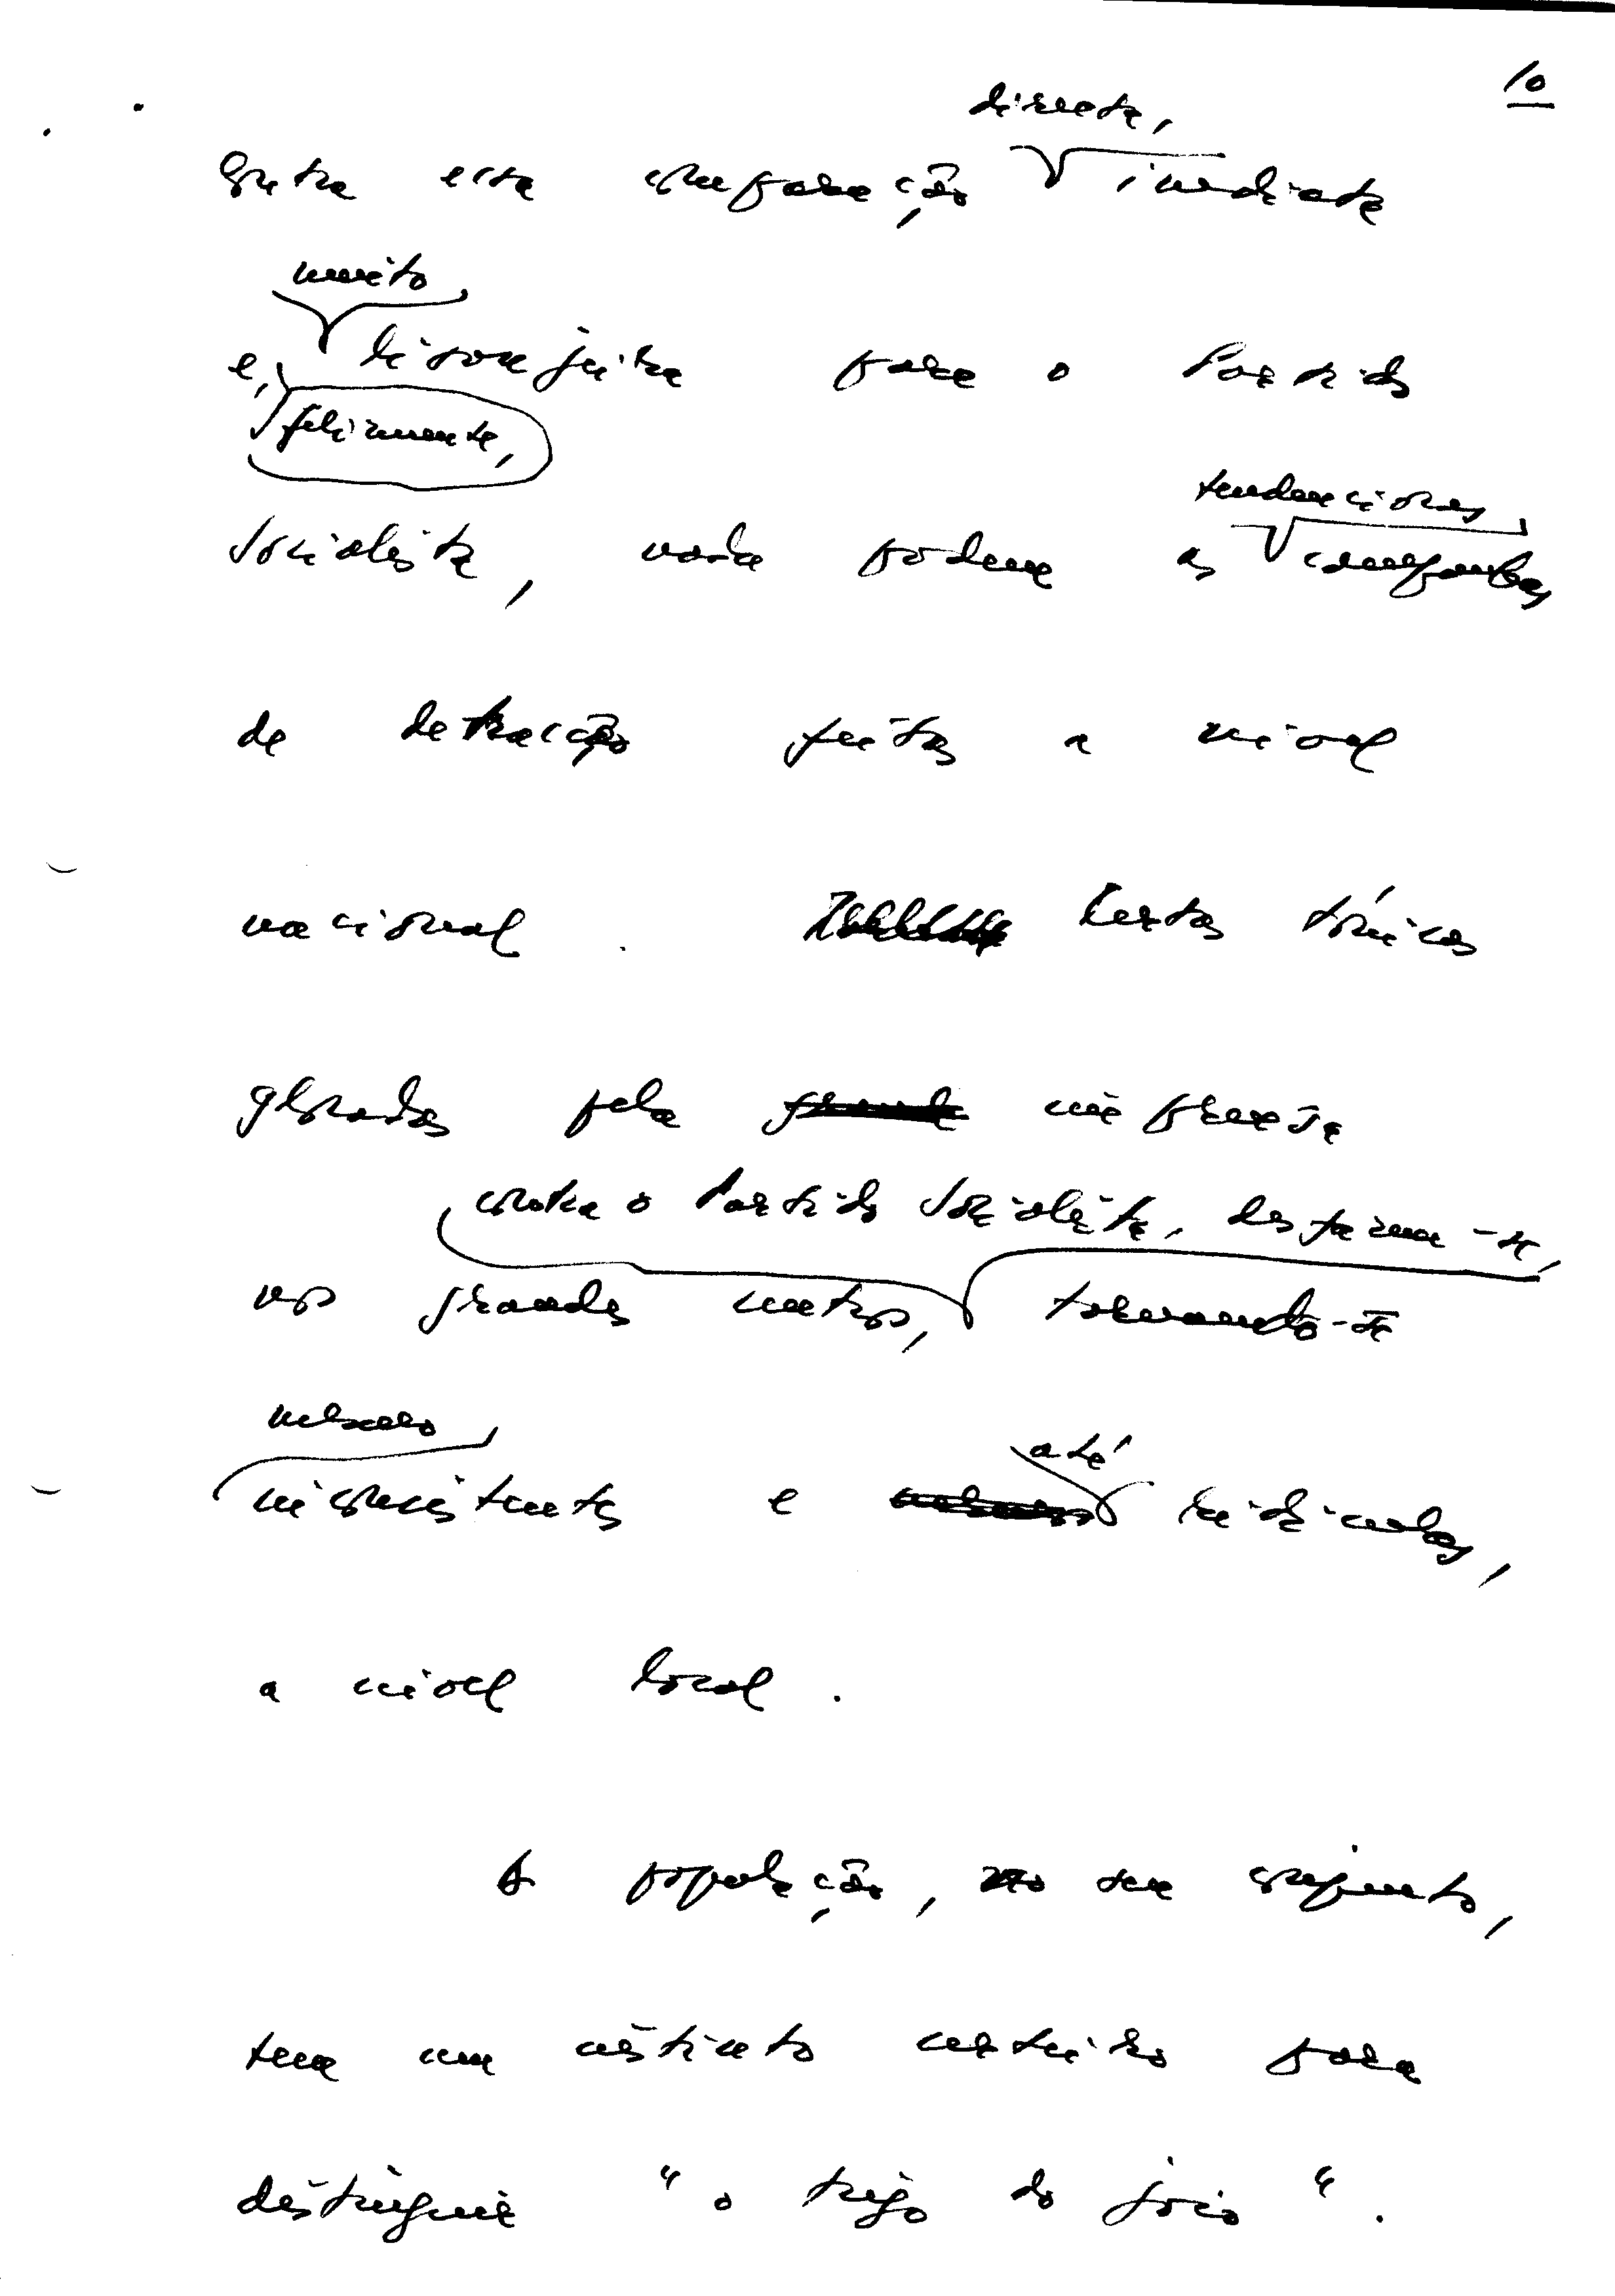 10
directa,
Contra esta comparação imediata
muito
e, lisonjeira para o Partido
felizmente,
tendenciosas
Socialista, nada podem as campanhas
de detracção feitas a nível
nacional. Certas tónicas
glosadas pela imprensa
contra o Partido Socialista, desfazem-se,
nos grandes centros, tornando-se
mesmo
inconsistentes e até ridículas,
a nível local.
A população, no seu conjunto,
tem um instinto certeiro para
distinguir "o trigo do joio".